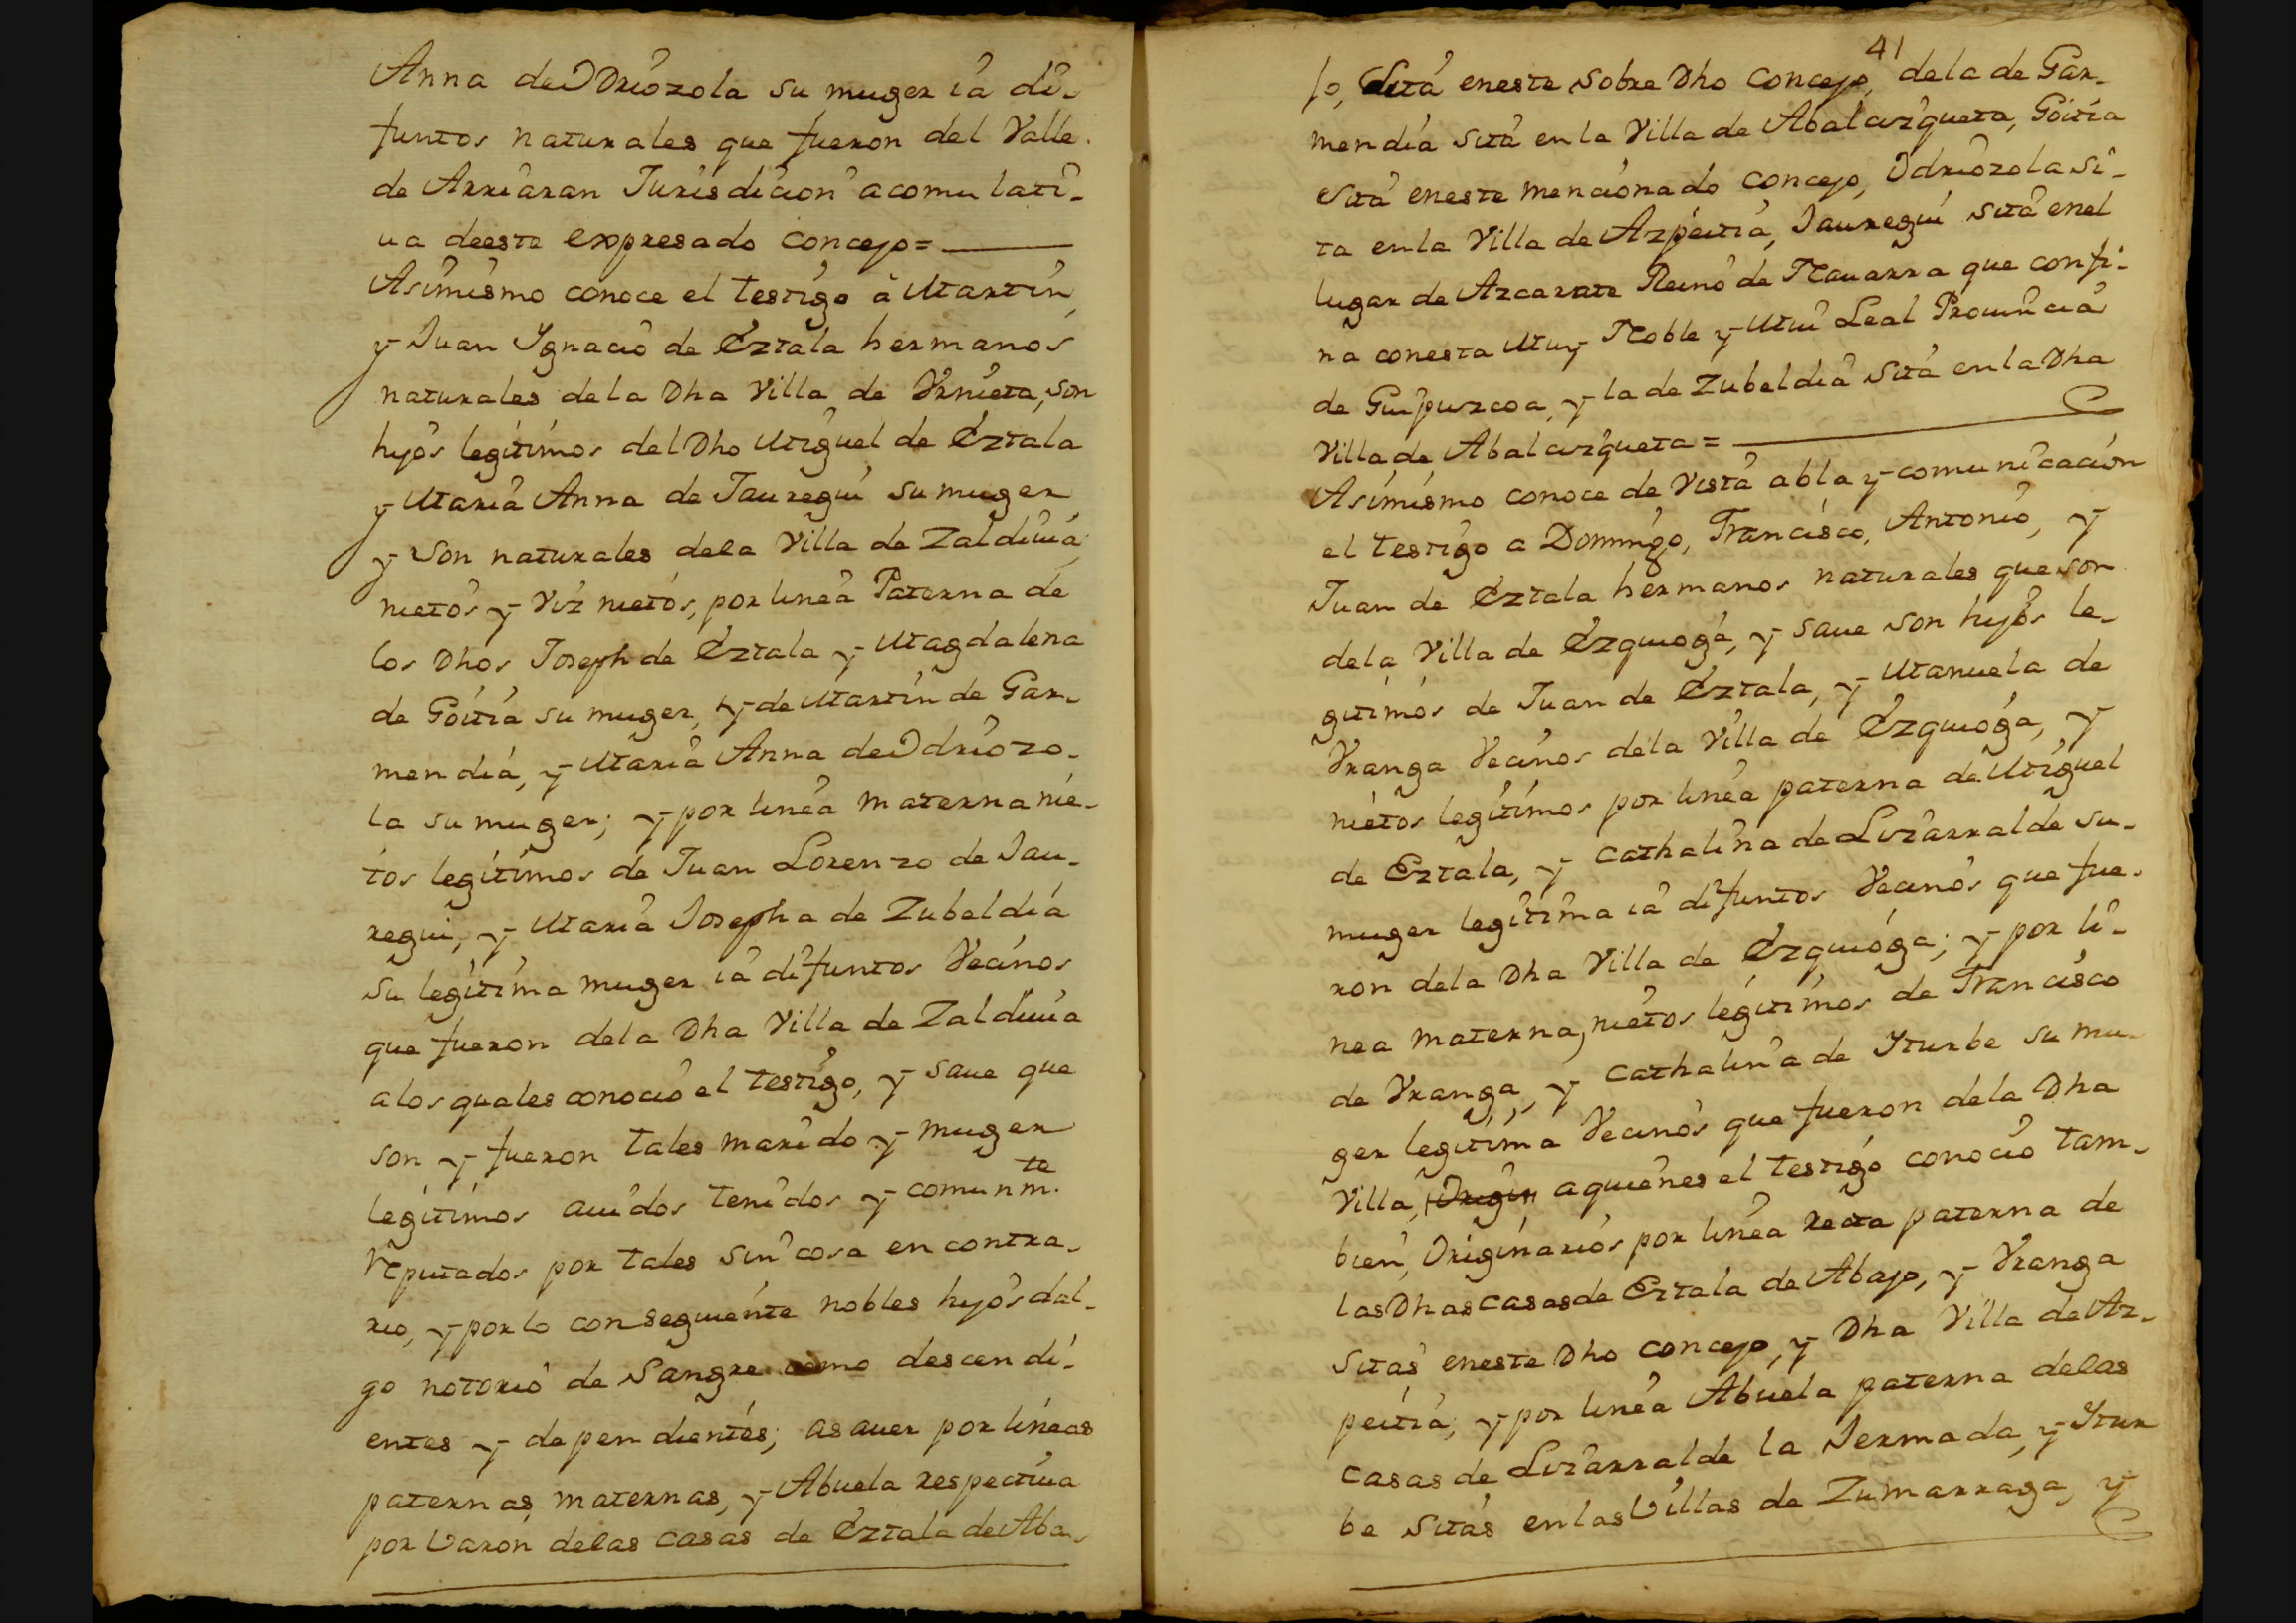 Anna de Odriozola su muger ia di-
funtos naturales que fueron del Valle
de Arriaran Jurisdicion acomulati-
ua deeste expresado concejo =
Asimismo conoce el testigo à Martin,
y Juan Ygnacio de Eztala hermanos
naturales dela Dha Villa de Vrnieta, son
hijos legitimos del Dho Miguel de Eztala
y Maria Anna de Jauregui su muger
y son naturales dela Villa de Zaldiuia,
nietos y Viz nietos, por linea Paterna de
los Dhos Joseph de Eztala y Magdalena
de Goitia su muger, y de Martin de Gar-
mendia, y Maria Anna de Odriozo-
la su muger; y por linea materna nie-
tos legitimos de Juan Lorenzo de Jau-
regui, y Maria Josepha de Zubeldia
su legitima muger ia difuntos Vecinos
que fueron dela Dha Villa de Zaldiuia
alos quales conocio el testigo, y saue que
son y fueron tales marido y muger
legitimos auidos tenidos y comunm.te
Reputados por tales sin cosa en contra-
rio, y por lo conseguiente nobles hijos dal-
go notorio de Sangre como descendi-
entes y dependientes; asauer por lineas
paternas, maternas, y Abuela respectiua
por Varon delas casas de Eztala de Aba-
41
jo, Sita eneste sobre Dho concejo, dela de Gar-
mendia sita en la Villa de Abalcizqueta, Goitia
Sita eneste mencionado concejo, Odriozola si-
ta en la Villa de Azpeitia, Jauregui sita enel
lugar de Azcarate Reino de Nauarra que confi-
na conesta Muy Noble y Mui Leal Prouincia
de Guipuzcoa, y la de Zubeldia sita en la Dha
Villa de Abalcizqueta =
Asimismo conoce de Vista abla y comunicacion
el testigo a Domingo, Francisco, Antonio, y
Juan de Eztala hermanos naturales que son
dela Villa de Ezquioga, y saue son hijos le-
gitimos de Juan de Eztala, y Manuela de
Vranga Vecinos dela Villa de Ezquioga, y
nietos legitimos por linea paterna de Miguel
de Eztala, y Cathalina de Lizarralde su-
muger legitima ia difuntos Vecinos que fue-
ron dela Dha Villa de Ezquioga; y por li-
nea materna, nietos legitimos de Francisco
de Vranga, y Cathalina de Yturbe su mu-
ger legitima Vecinos que fueron dela Dha
Villa, Origin aquienes el testigo conocio tam-
bien, Originarios por linea recta paterna de
las Dhas casas de Eztala de Abajo, y Vranga
Sitas eneste Dho concejo, y Dha Villa de Az-
peitia; y por linea Abuela paterna delas
casas de Lizarralde la Jermada, y Ytur
be Sitas en las Villas de Zumarraga, y